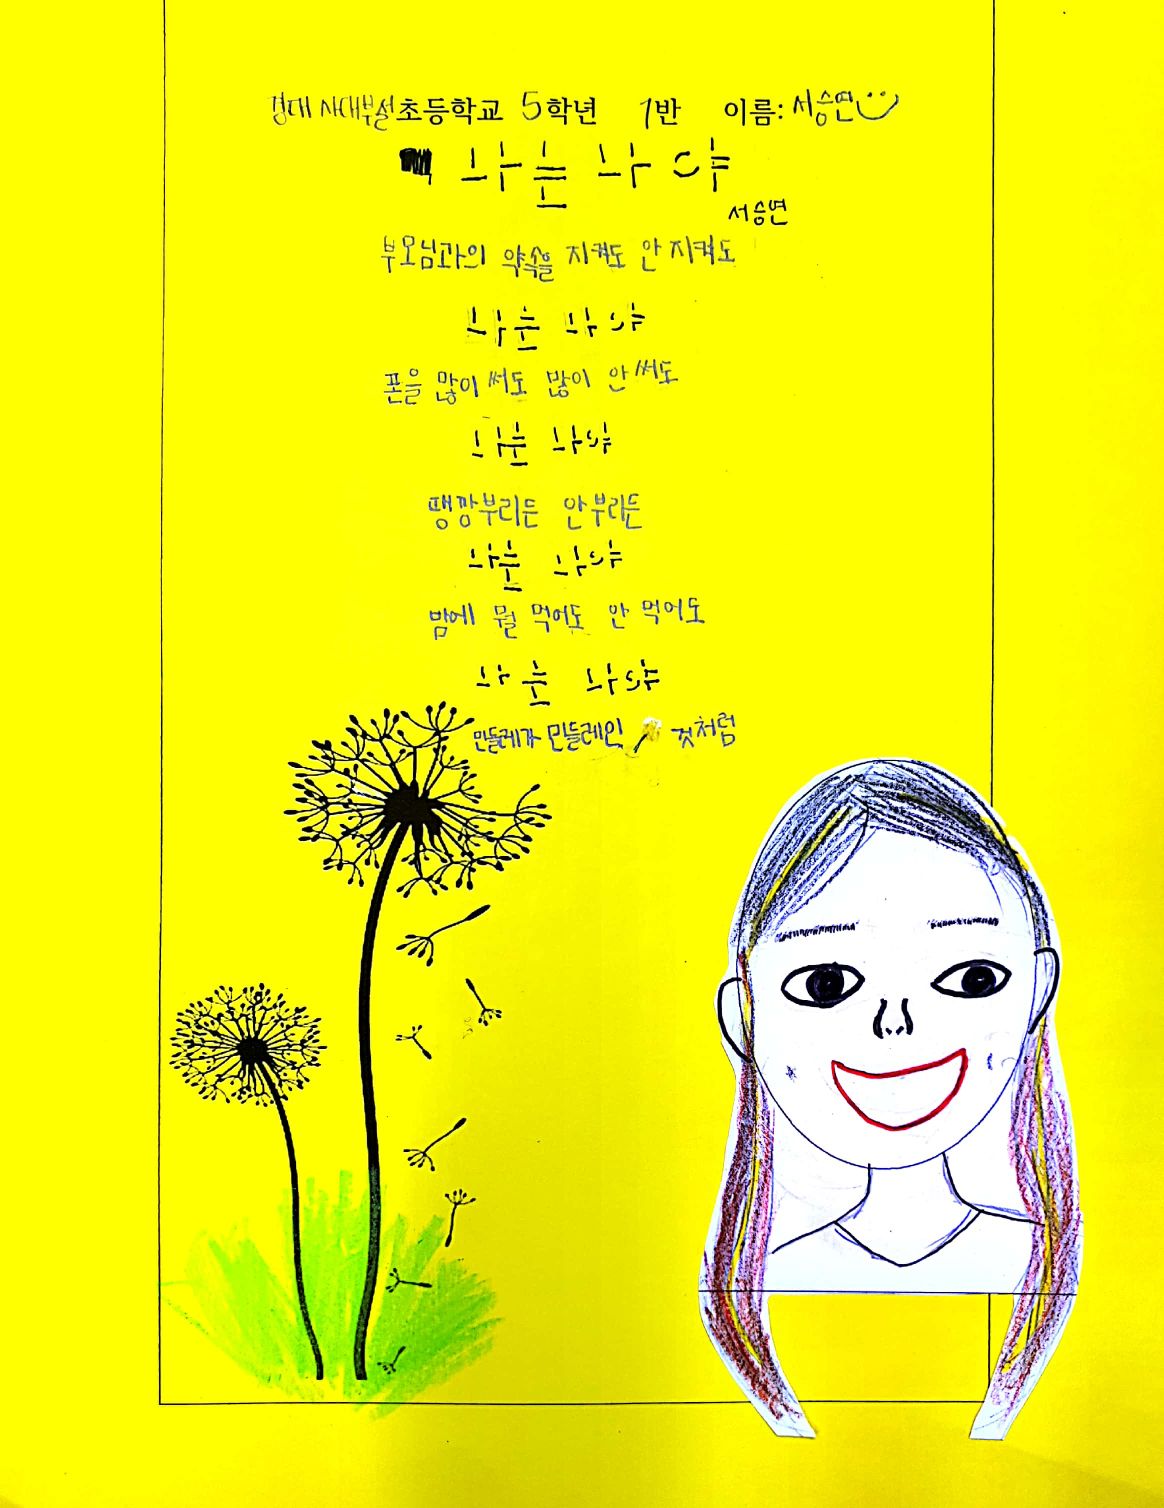 경대 사대부설초등학교 5학년 1반 이름: 서승연
나는 나야
서승연
부모님과의 약속을 지켜도 안 지켜도
나는 나야
폰을 많이 써도 많이 안 써도
나는 나야
땡깡부리든 안부리든
나는 나야
밤에 뭘 먹어도 안 먹어도
나는 나야
민들레가 민들레인 것처럼